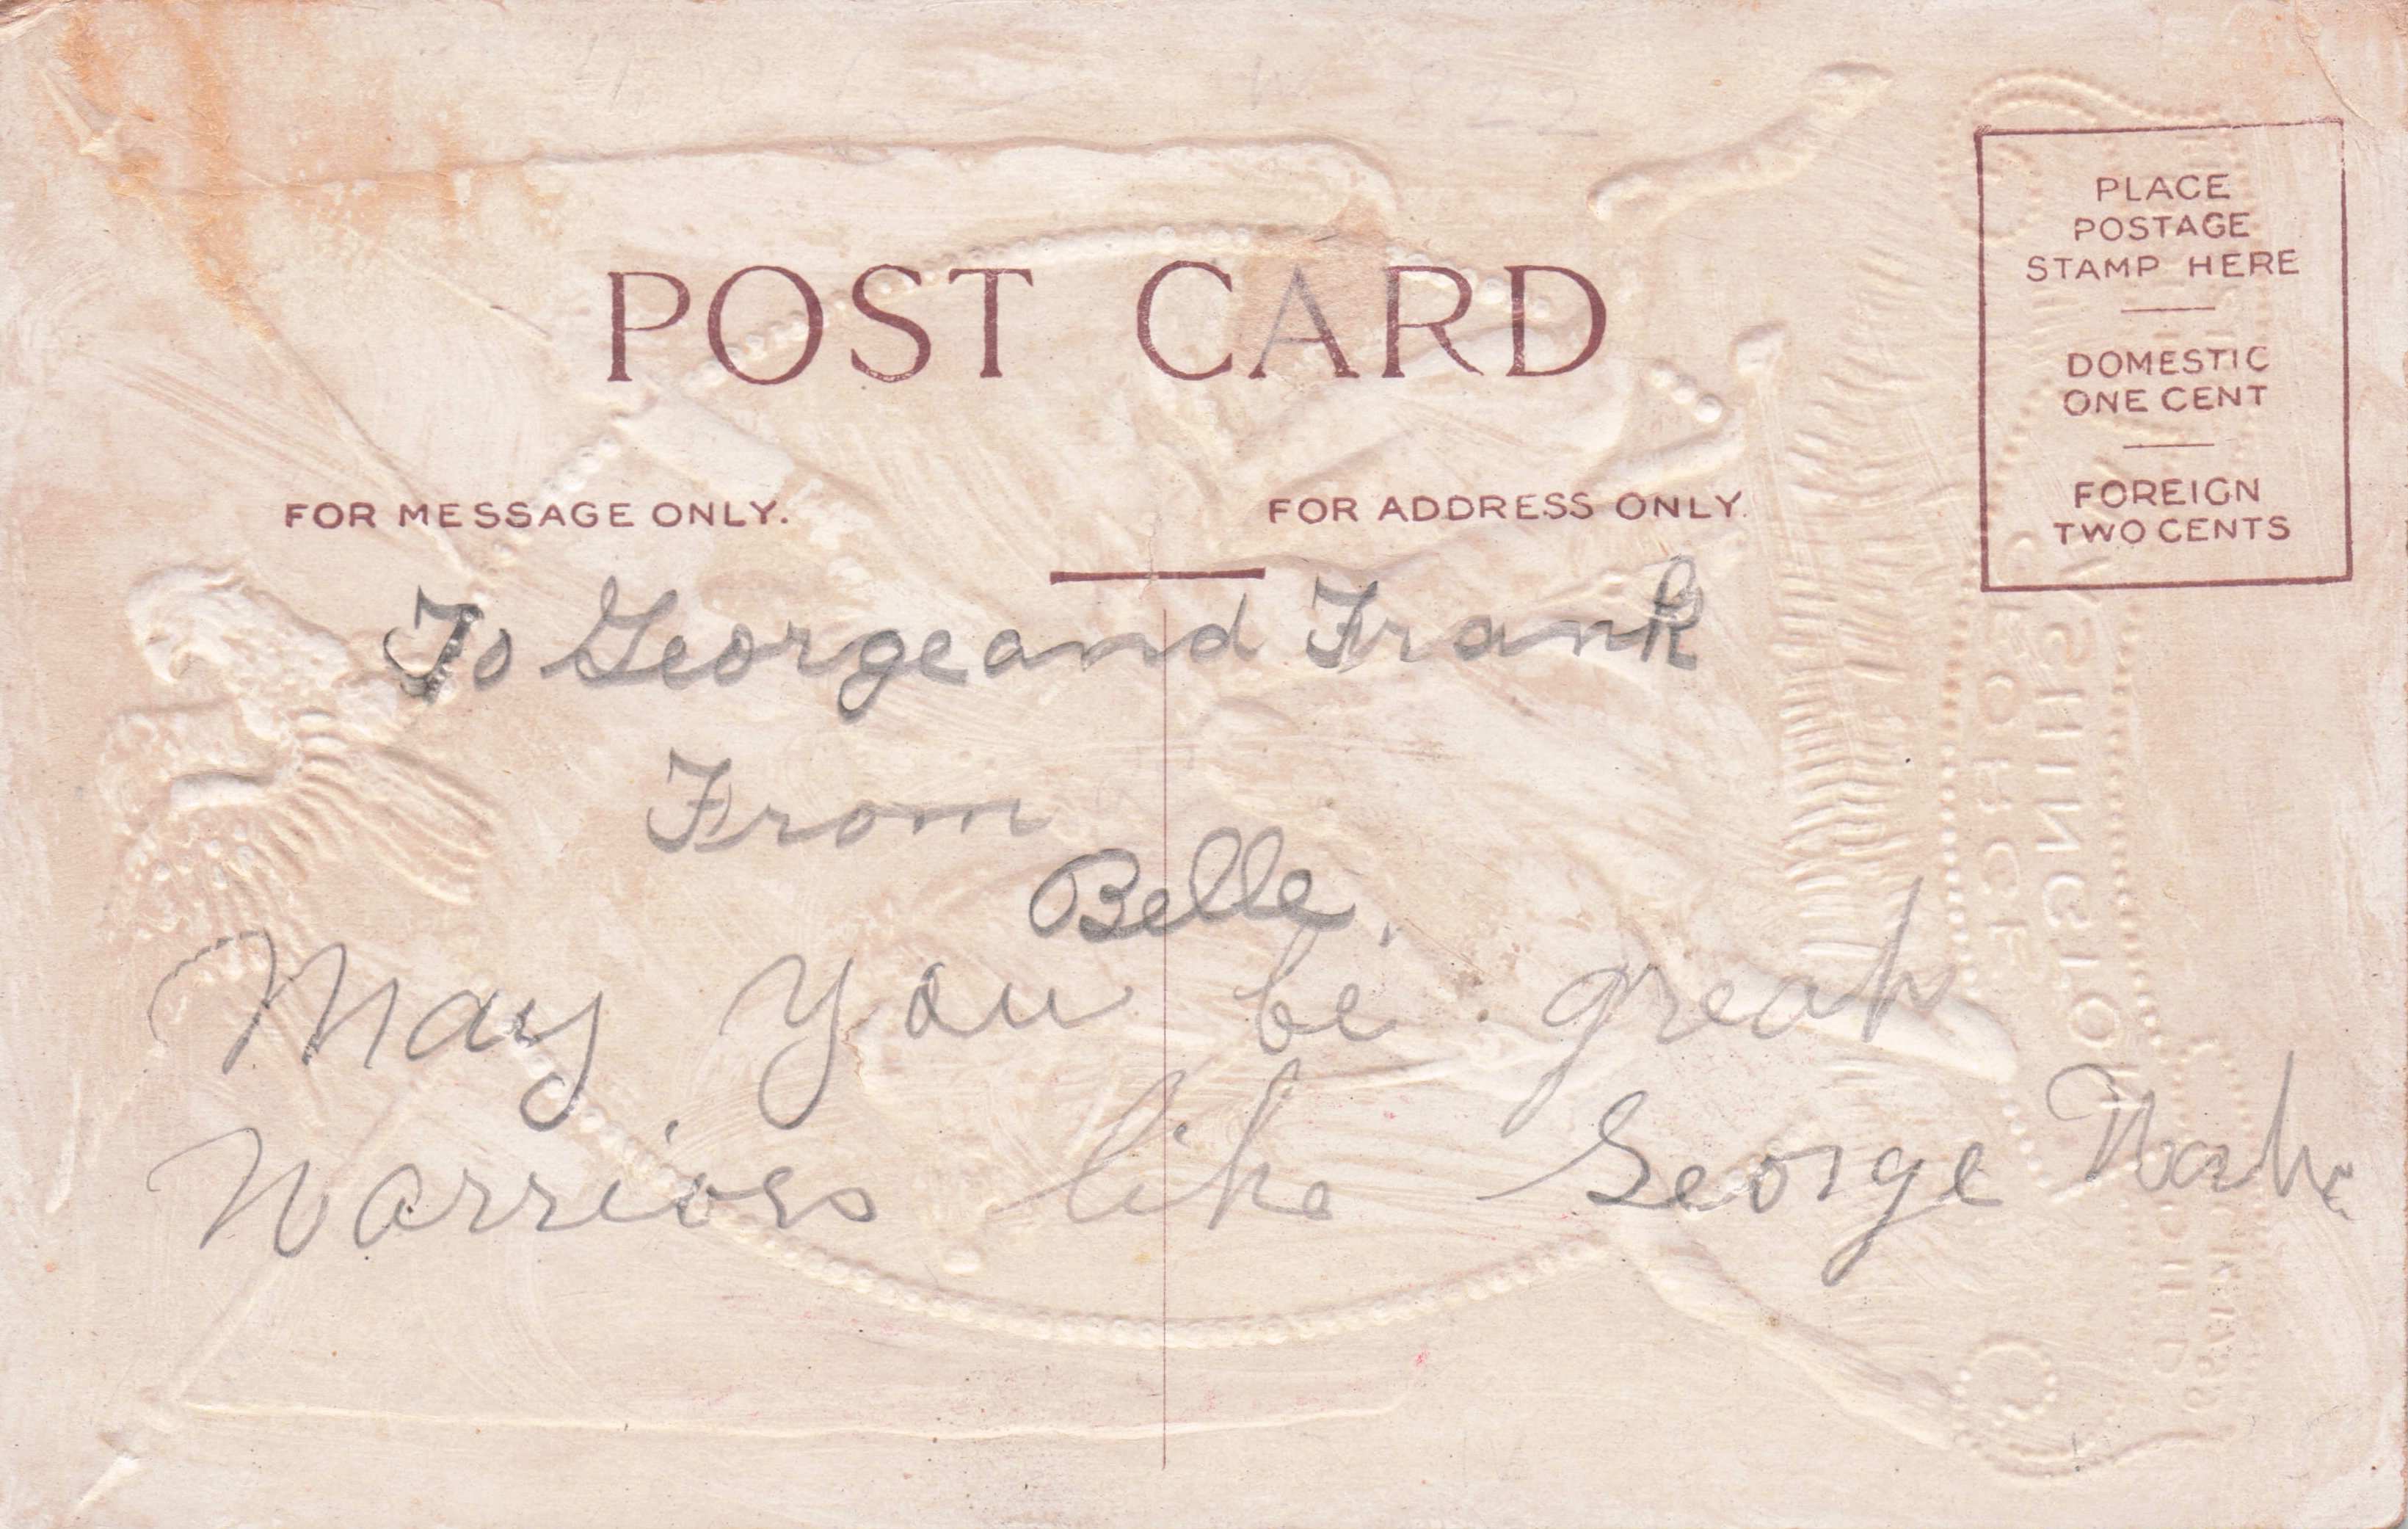 POST CARD
FOR MESSAGE ONLY.
FOR ADDRESS ONLY.
PLACE
POSTAGE
STAMP HERE
DOMESTIC
ONE CENT
FOREIGN
TWO CENTS
To George and Frank
From
Belle.
May you be great
Warriors like George Wash